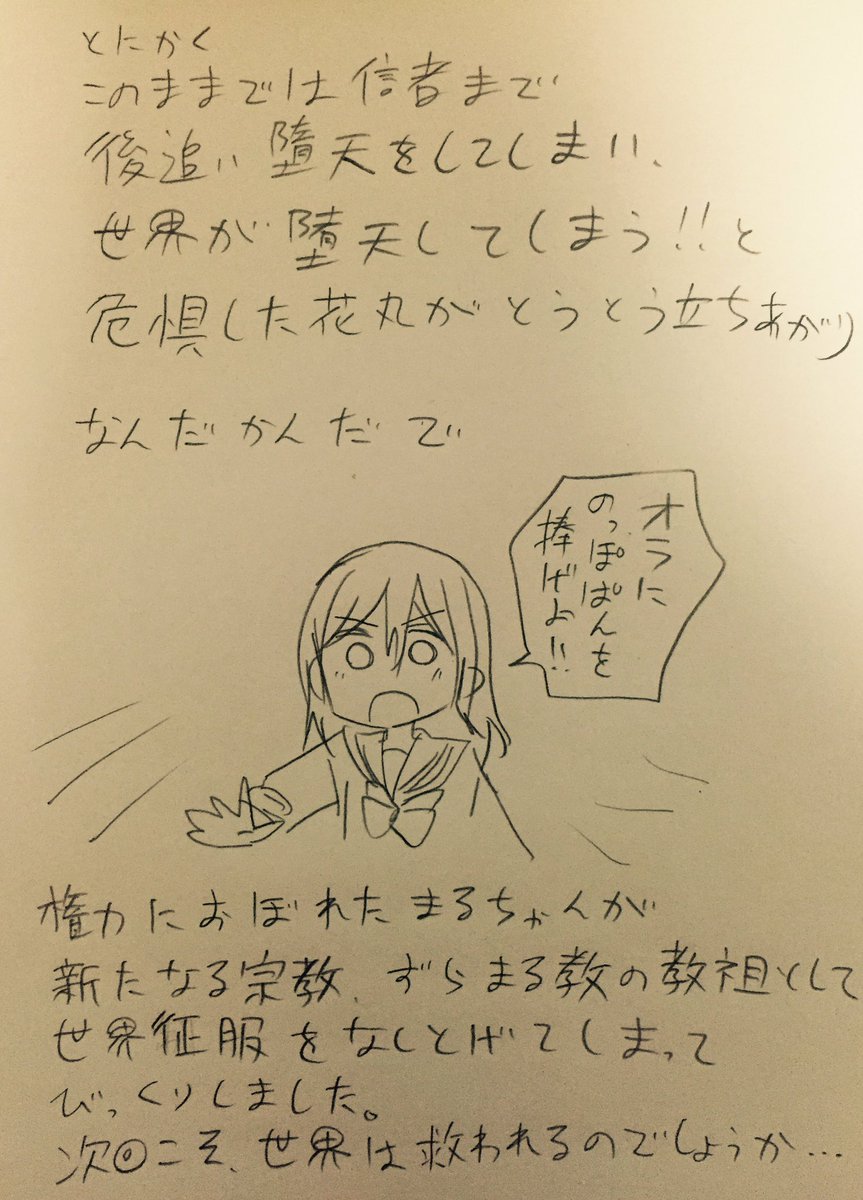 とにかく
このままでは信者まで
後追い堕天をしてしまい、
世界が堕天してしまう!!と
危惧した花丸がとうとう立ちあがり
なんだかんだで
オラに
のっぽぱんを
捧げよ!!
権力におぼれたまるちゃんが
新たなる宗教、ずらまる教の教祖として
世界征服をなしとげてしまって
びっくりしました。
次回こそ、世界は救われるのでしょうか…